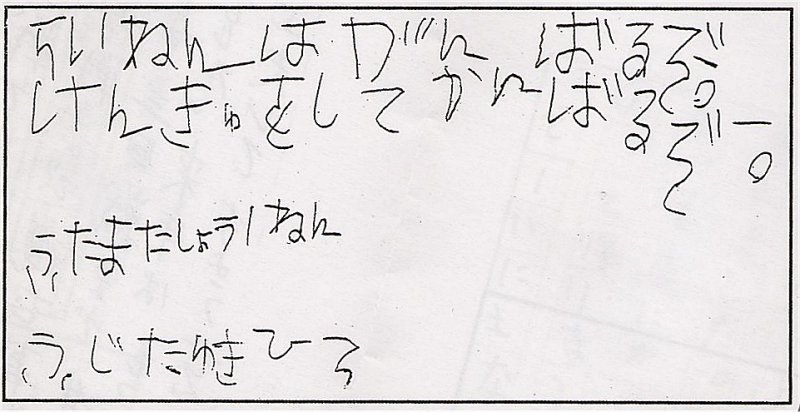 らいねんはがんばるぞ。
けんきゅをしてかんばるぞー。
ふたまたしょう1ねん
ふじたゆきひろ